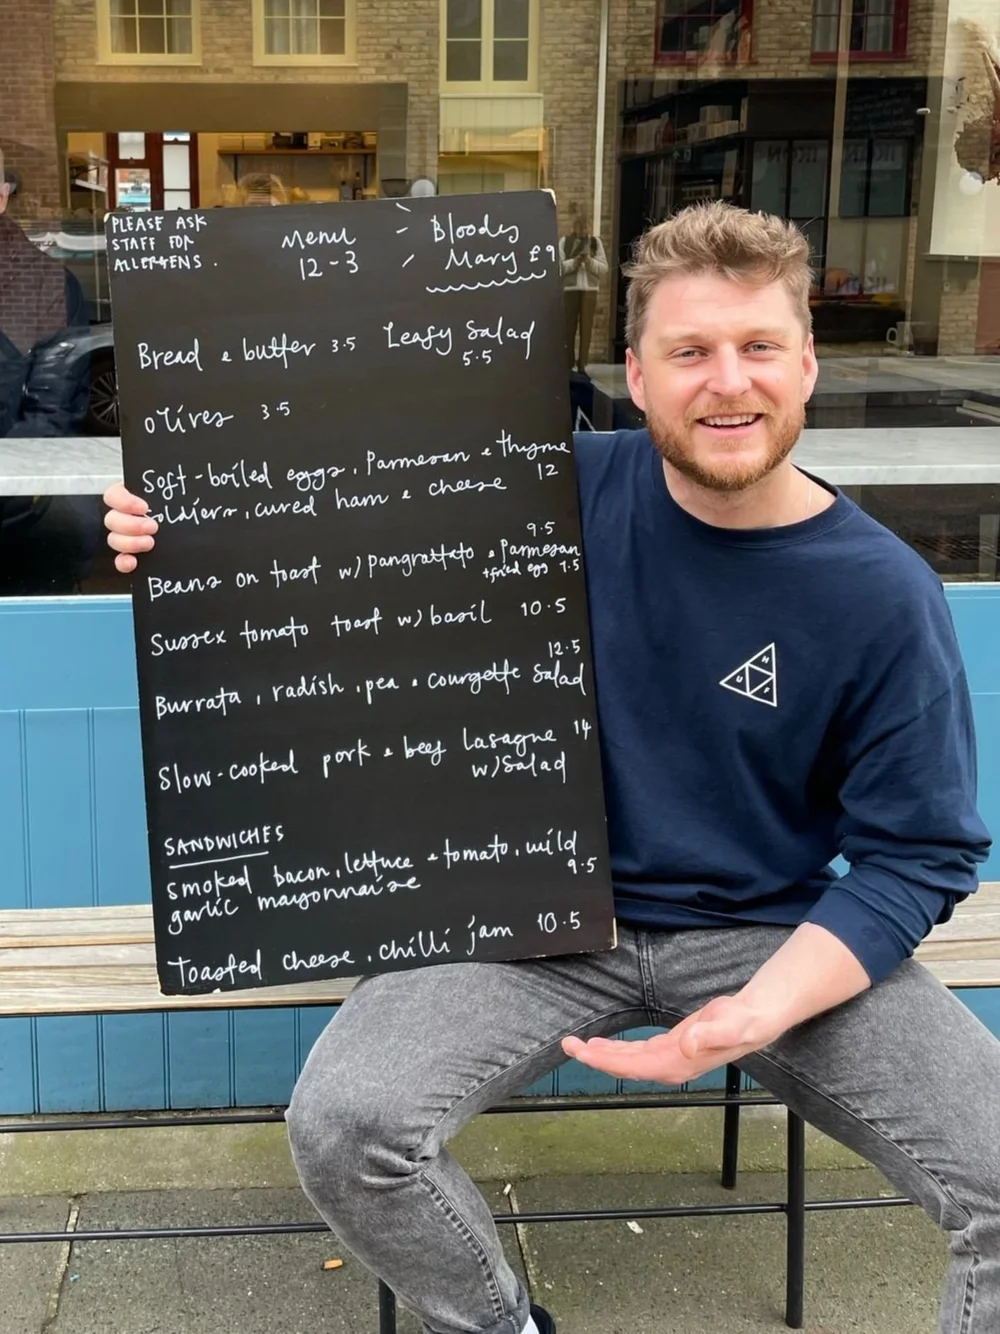 PLEASE ASK
STAFF FOR
ALLERGENS.
Menu
12-3
Bloody
Mary £9
Bread & butter 3.5
Leafy Salad
5.5
Olives 3.5
Soft-boiled eggs, Parmesan & thyme
soldiers, cured ham & cheese 12
9.5
Beans on toast w/ pangrattato & Parmesan
+fried egg 1.5
Sussex tomato toast w/ basil 10.5
12.5
Burrata, radish, pea & courgette Salad
Slow-cooked pork & beef lasagne 14
w/ Salad
SANDWICHES
Smoked bacon, lettuce & tomato, wild
garlic mayonnaise 9.5
Toasted cheese, chilli jam 10.5
HUF